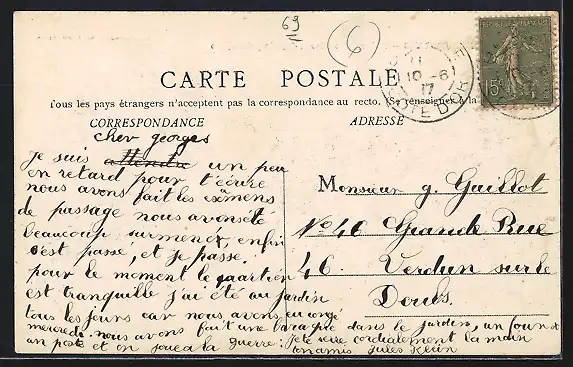 69
6
11
10-6
17
CÔTE D'OR
15
CARTE POSTALE
Tous les pays étrangers n'acceptent pas la correspondance au recto. (Se renseigner à la
CORRESPONDANCE
ADRESSE
cher georges
je suis attendre un peu
en retard pour t'écrire
nous avons fait les examens
de passage nous avons été
beaucoup surmenés, enfin
c'est passé, et je passe.
pour le moment le quartier
est tranquille j'ai été au jardin
tous les jours car nous avons eu congé
mercredi. nous avons fait une baraque dans le jardin, un four &
un poste et on joue a la guerre: je te serre cordialement la main
ton amis Jules Klein
Monsieur g. Guillot
No 46 Grande Rue
46. Verdun sur le
Doubs.